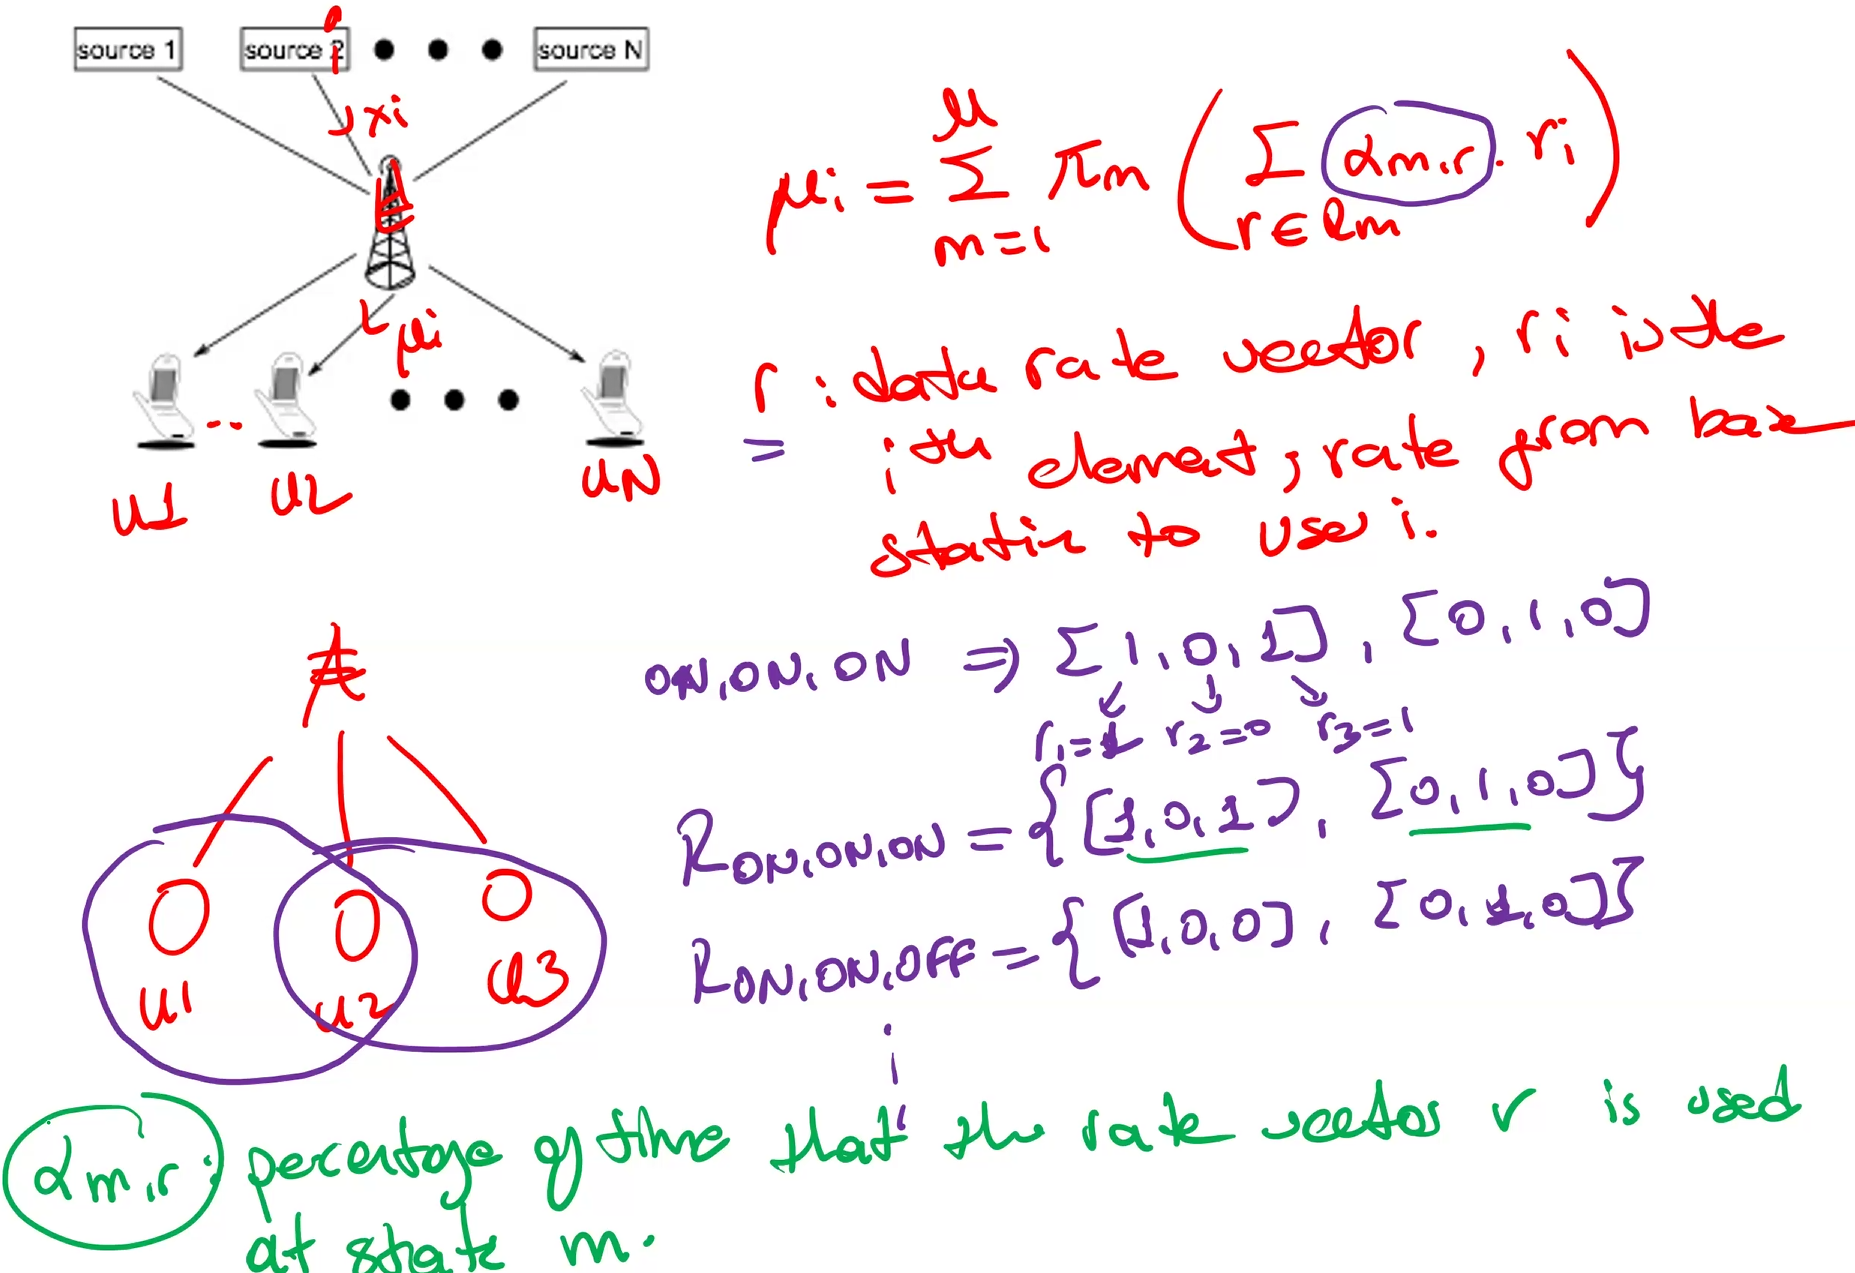 source 1 source 2 source N
i
xi
μi
U1 U2 UN
μi = M Σ m=1 πm ( Σ r∈Rm αm,r . ri )
r : data rate vector, ri is the
ith element, rate from base
station to user i.
ON, ON, ON ⇒ [1, 0, 1], [0, 1, 0]
r1=1 r2=0 r3=1
R ON,ON,ON = {[1,0,1], [0,1,0]}
R ON,ON,OFF = {[1,0,0], [0,1,0]}
U1 U2 U3
αm,r : percentage of time that the rate vector r is used
at state m.